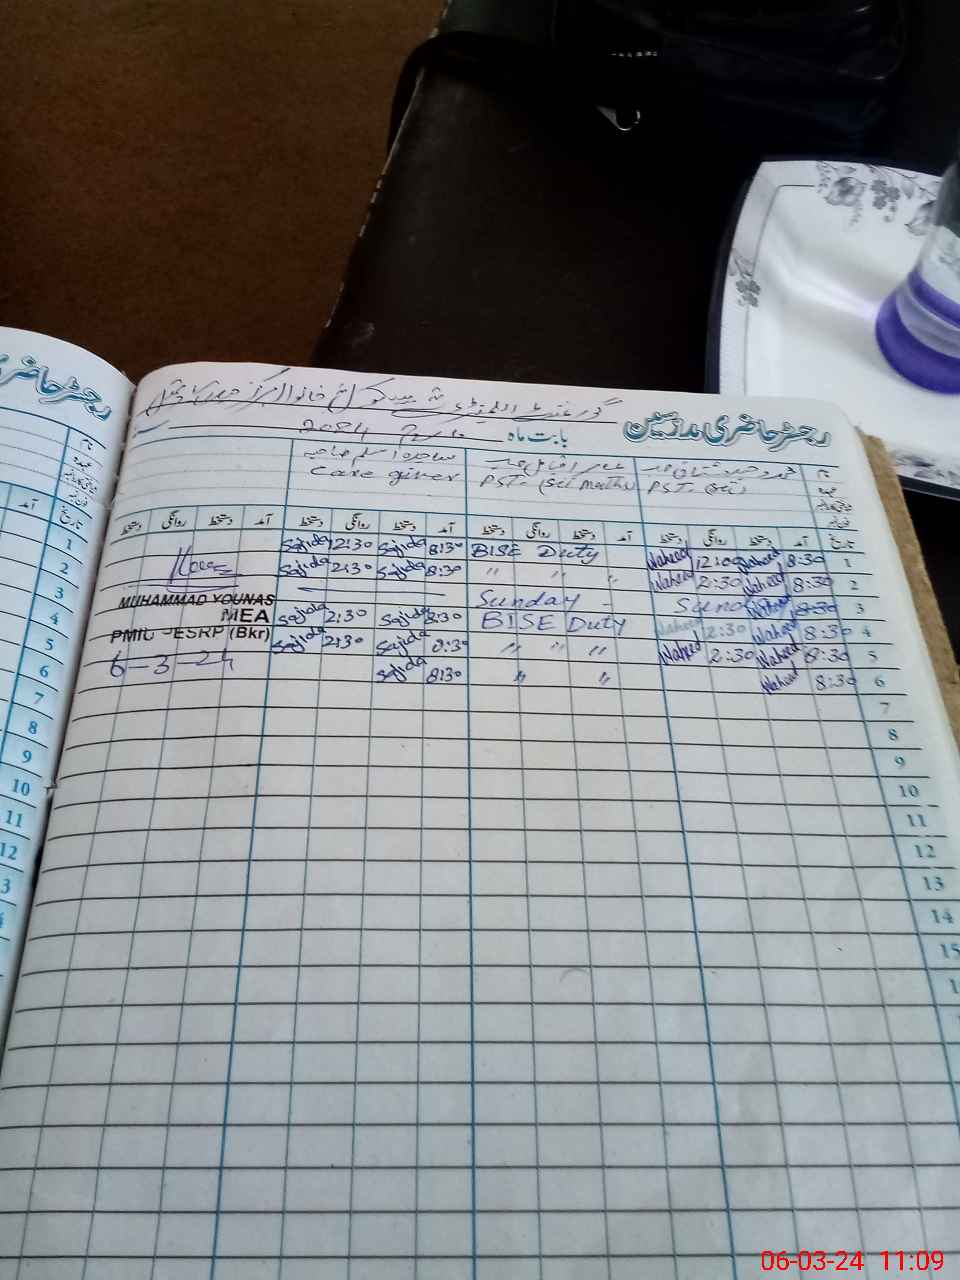 رجسٹر حاضری
رجسٹر حاضری مدرسین
بابت ماہ مارچ 2024
نام
عہدہ
Care giver
PST. (Sci Math)
PST. (Sci)
تاریخ آمد دستخط روانگی دستخط آمد دستخط روانگی دستخط آمد دستخط روانگی دستخط آمد دستخط روانگی دستخط
Sajida 12:30 Sajida 8:30 BISE Duty Waheed 12:00 Waheed 8:30 1
Sajida 2:30 Sajida 8:30 " " " Waheed 2:30 Waheed 8:30 2
Sunday - Sund 8:30 3
Sajida 2:30 Sajida 8:30 BISE Duty Waheed 2:30 Waheed 8:30 4
Sajida 2:30 Sajida 8:30 " " " Waheed 2:30 Waheed 8:30 5
Sajida 8:30 " " Waheed 8:30 6
MUHAMMAD YOUNAS
MEA
PMIU PESRP (Bkr)
6-3-24
7
8
9
10
11
12
13
14
15
1
2
3
4
5
6
7
8
9
10
11
12
3
06-03-24 11:09